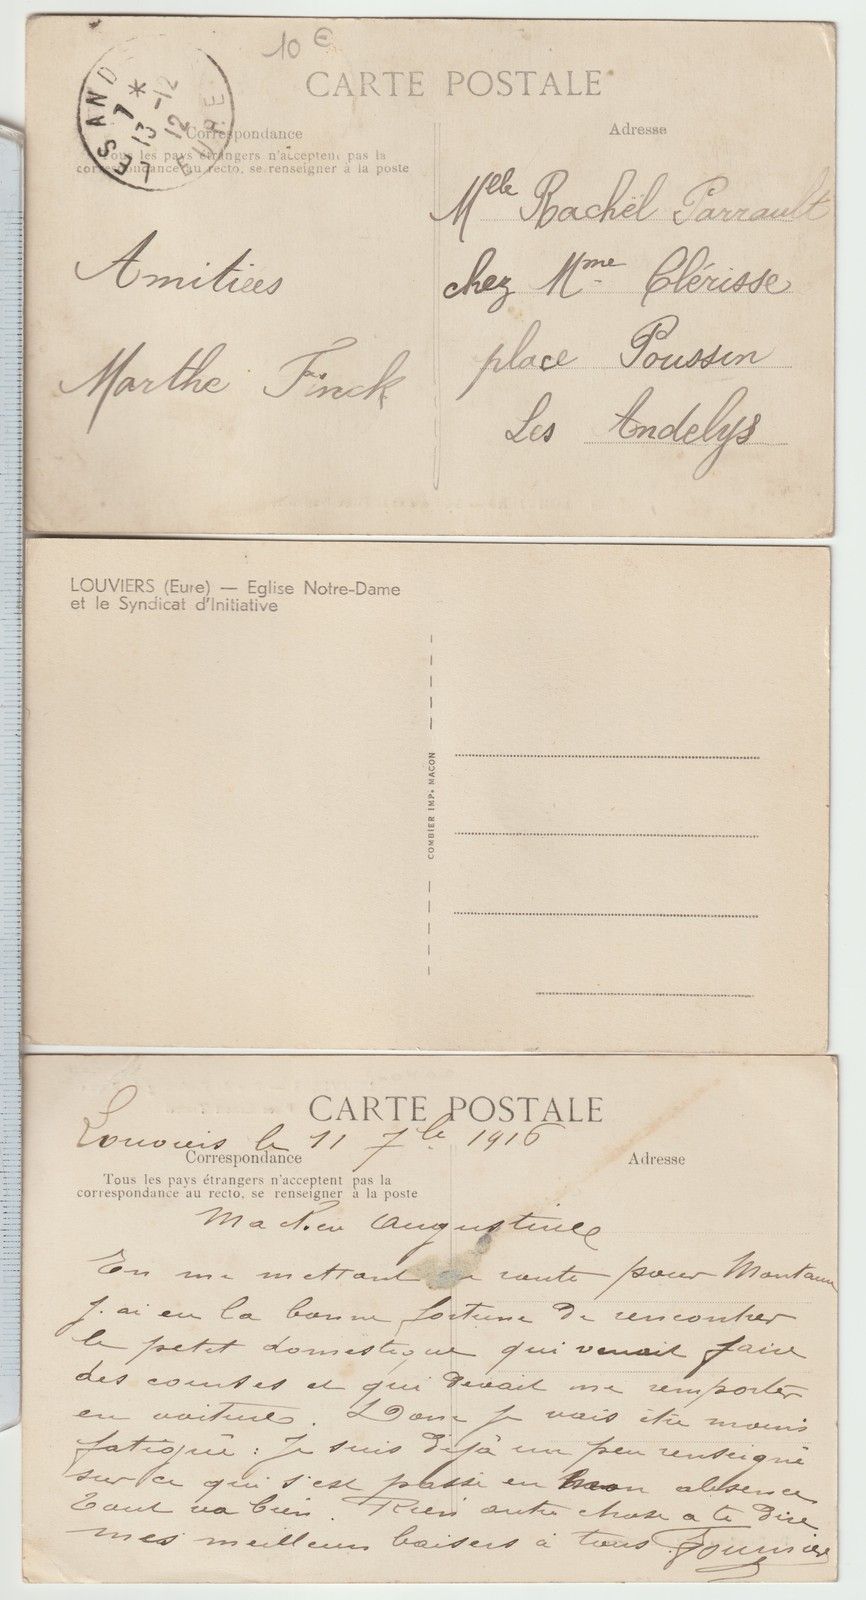 10 €
CARTE POSTALE
LES AND
7 *
13 -12
12
EURE
Correspondance
Tous les pays étrangers n'acceptent pas la
correspondance au recto, se renseigner à la poste
Adresse
Amitiées
Marthe Finck
Mlle Rachël Parrault
chez Mme Clérisse
place Poussin
Les Andelys
LOUVIERS (Eure) — Eglise Notre-Dame
et le Syndicat d'Initiative
COMBIER IMP. MACON
CARTE POSTALE
Louviers le 11 7bre 1916
Correspondance
Adresse
Tous les pays étrangers n'acceptent pas la
correspondance au recto, se renseigner à la poste
Ma Augustine
En me mettant route pour
j'ai eu la bonne fortune de rencontrer
le petit domestique qui venait faire
des courses et qui devait me remporter
en voiture. Donc je vais être moins
fatigué : Je suis déjà un peu renseigné
sur ce qui s'est passé en mon absence
Tout va bien. Rien autre chose a te dire
mes meilleurs baisers à tous Fournier